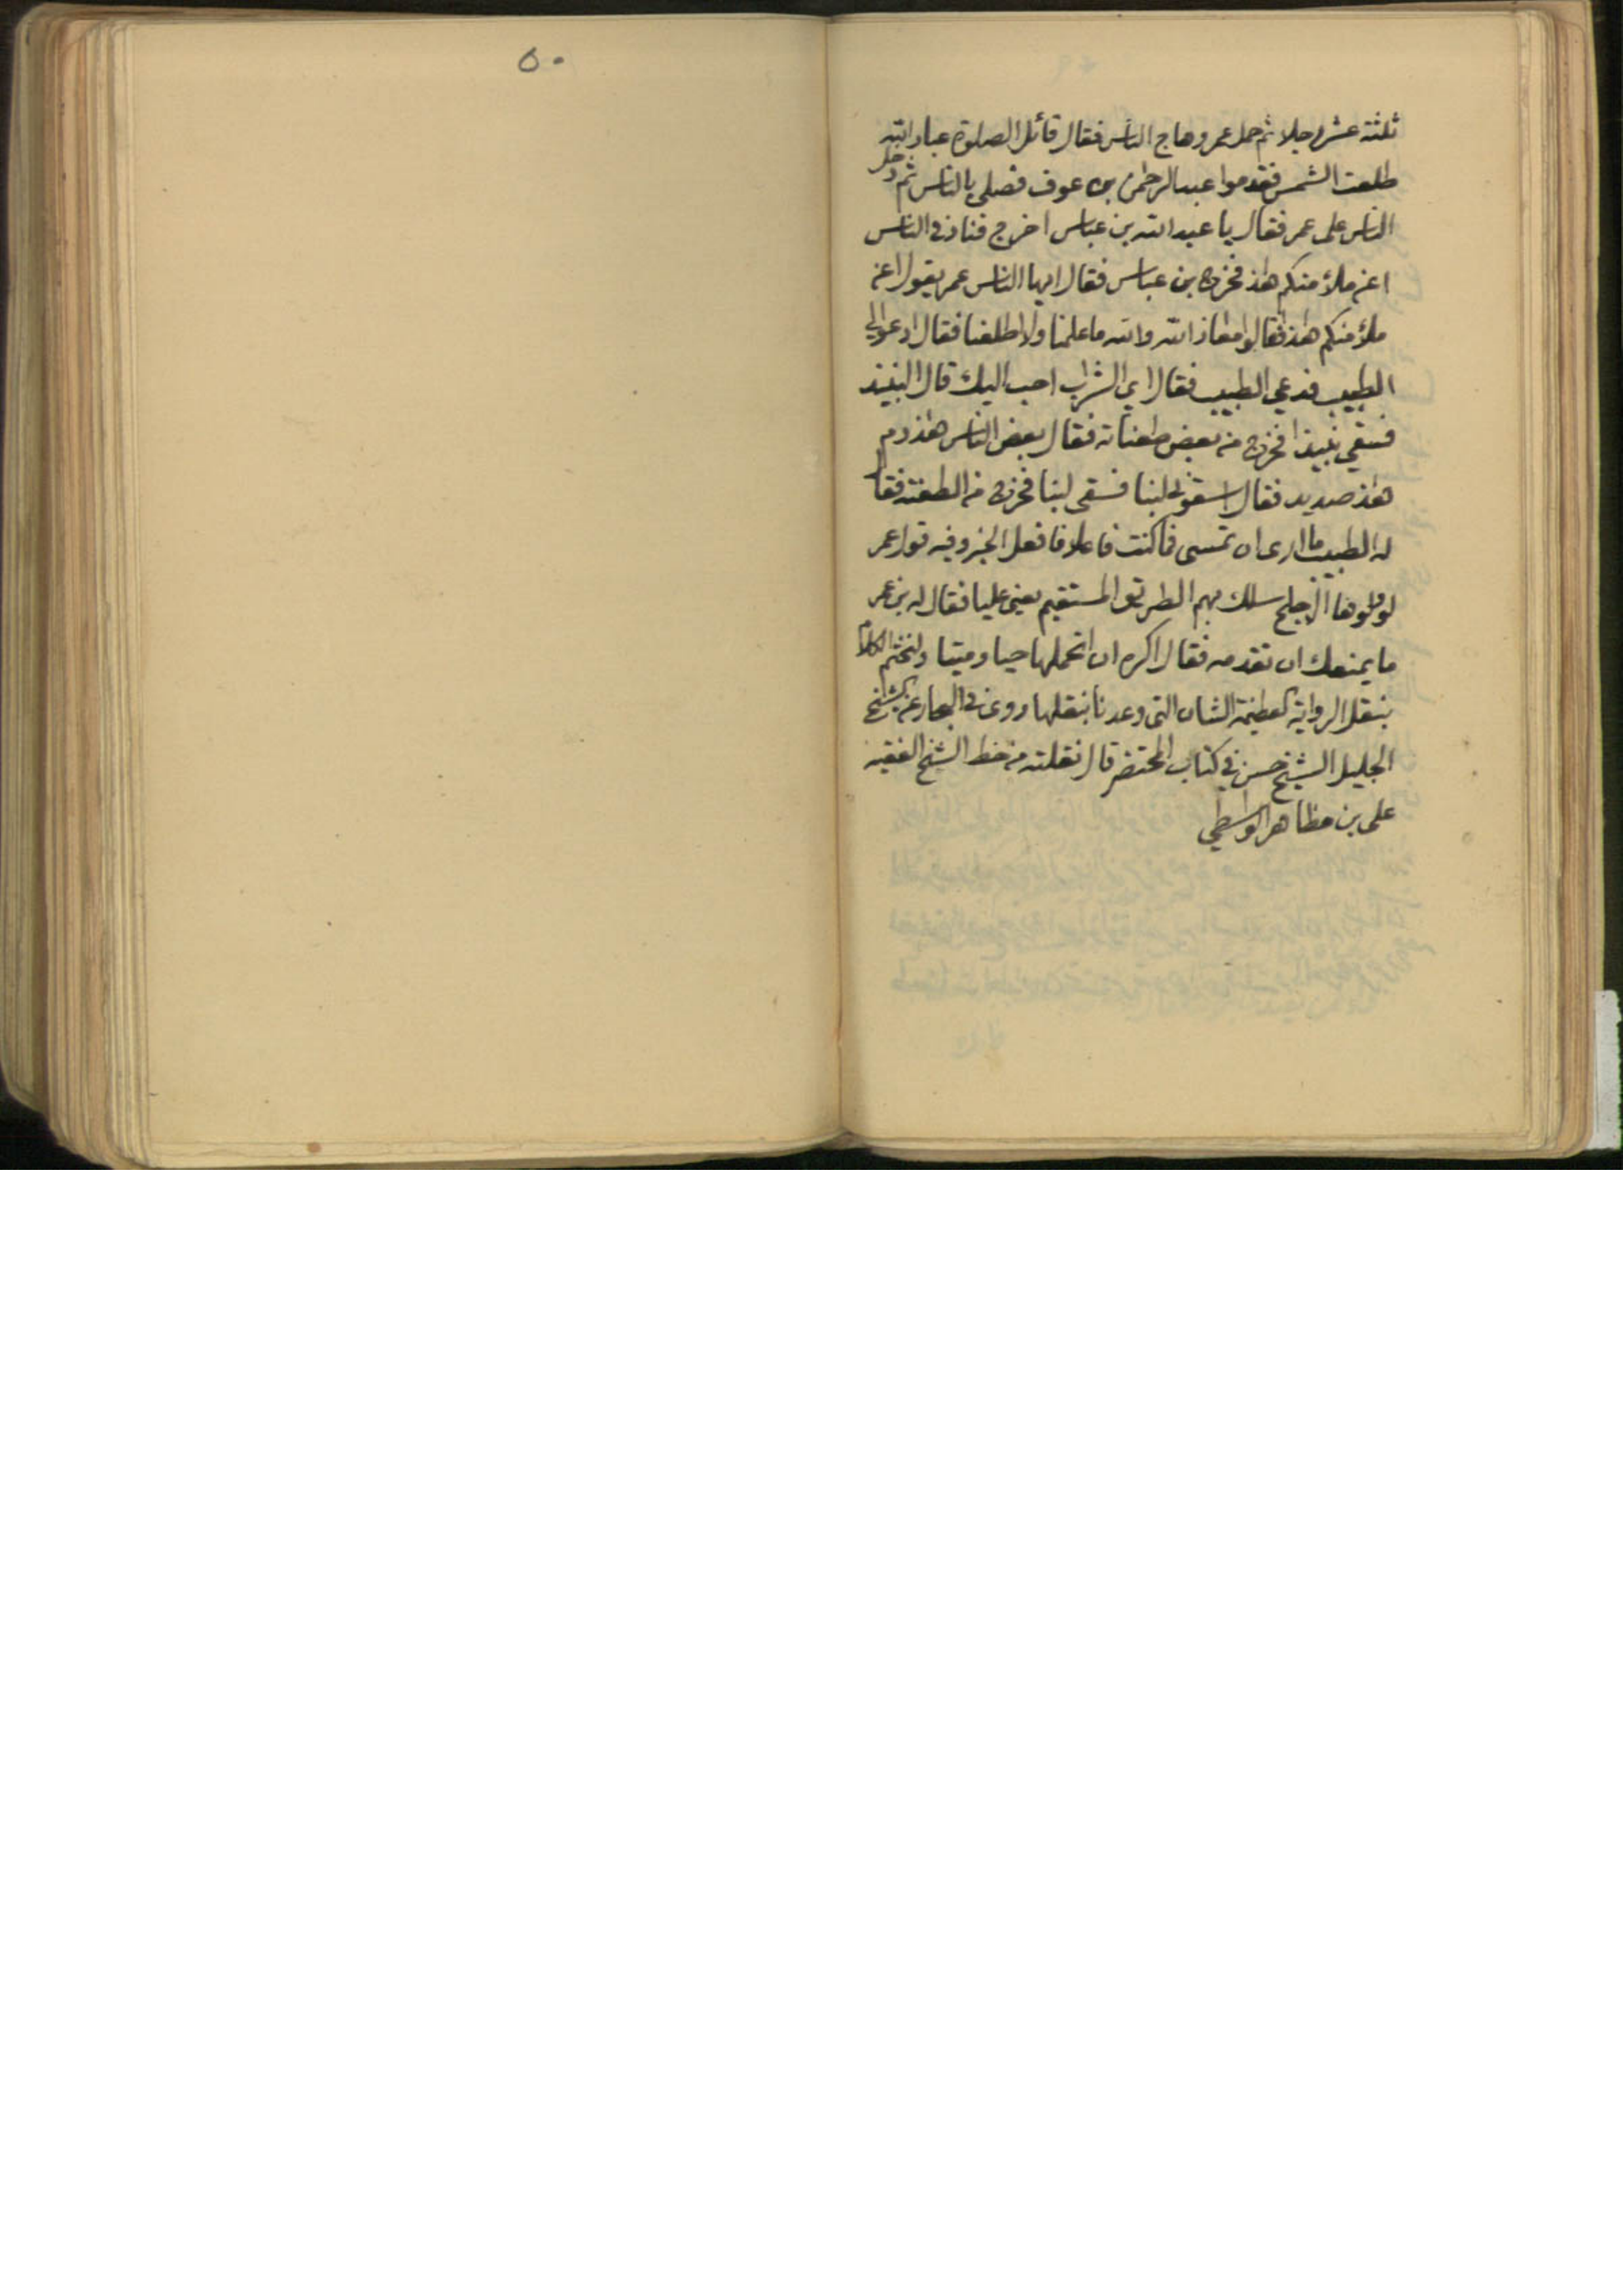 ٥٠
ثلثة عشر رجلا ثم حمل عمر وهاج الناس فقال قائل الصلوة عباد الله
طلعت الشمس فقدموا عبد الرحمن بن عوف فصلى بالناس ثم دخل
الناس على عمر فقال يا عبد الله بن عباس اخرج فناد في الناس
اعن ملأ منكم هذا فخرج بن عباس فقال ايها الناس عمر يقول اعن
ملأ منكم هذا فقالوا معاذ الله والله ما علمنا ولا اطلعنا فقال ادعوا لي
الطبيب فدعي الطبيب فقال اي الشراب احب اليك قال النبيذ
فسقي نبيذا فخرج من بعض طعناته فقال بعض الناس هذا دم
هذا صديد فقال اسقوني لبنا فسقي لبنا فخرج من الطعنة فقال
له الطبيب ما ارى ان تمسى فما كنت فاعلا فافعل الخبر وفيه قول عمر
لو ولوها الاجلح سلك بهم الطريق المستقيم يعني عليا فقال له بن عمر
ما يمنعك ان تقدمه فقال اكره ان اتحملها حيا وميتا ولنختم الكلام
بنقل الرواية العظيمة الشان التي وعدنا بنقلها روى في البحار عن الشيخ
الجليل الشيخ حسن في كتاب المحتضر قال نقلته من خط الشيخ الفقيه
على بن مظاهر الواسطي